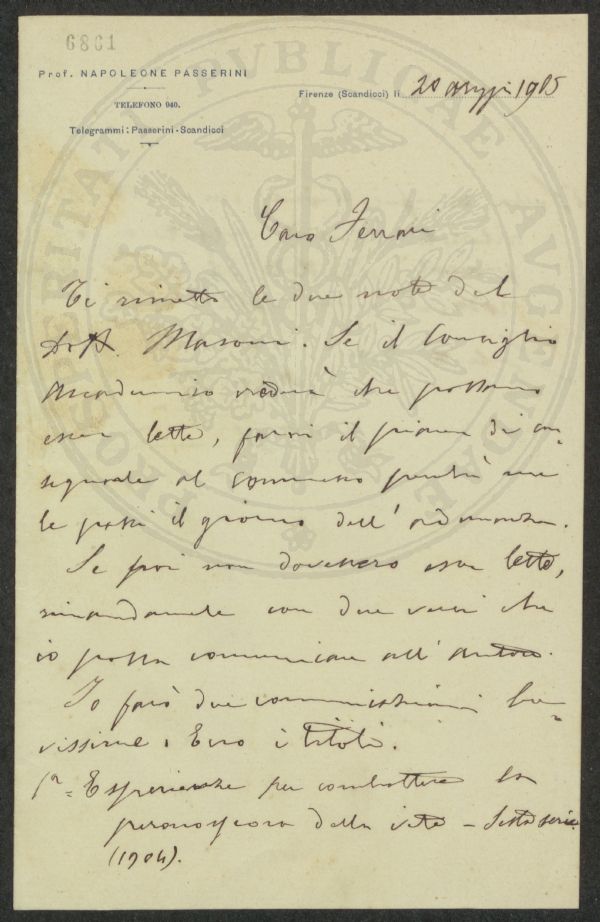 6861
Prof. NAPOLEONE PASSERINI
TELEFONO 940.
Telegrammi: Passerini - Scandicci
Firenze (Scandicci) li 20 1905
PROSPERITATI PUBLICAE AUGENDAE
Caro Ferrari
Ti rimetto le due note del
Dr A. Masoni. Se il Consiglio
Accademico vedrà che possano
esser lette, fammi il piacere di con-
segnarle al commesso perchè me
le passi il giorno dell'adunanza.
Se poi non dovessero esser lette,
rimandamele con due versi che
io possa comunicare all'autore.
Io farò due comunicazioni bre-
vissime. Ecco i titoli.
1a = Esperienze per combattere la
peronospora della vite - Sesta serie
(1904).